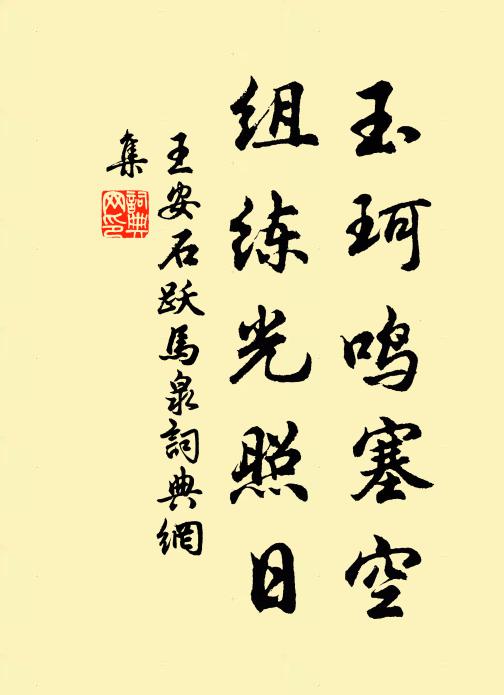 玉珂鸣塞空
组练光照日
王安石跃馬泉詞典網
集
詞典網印